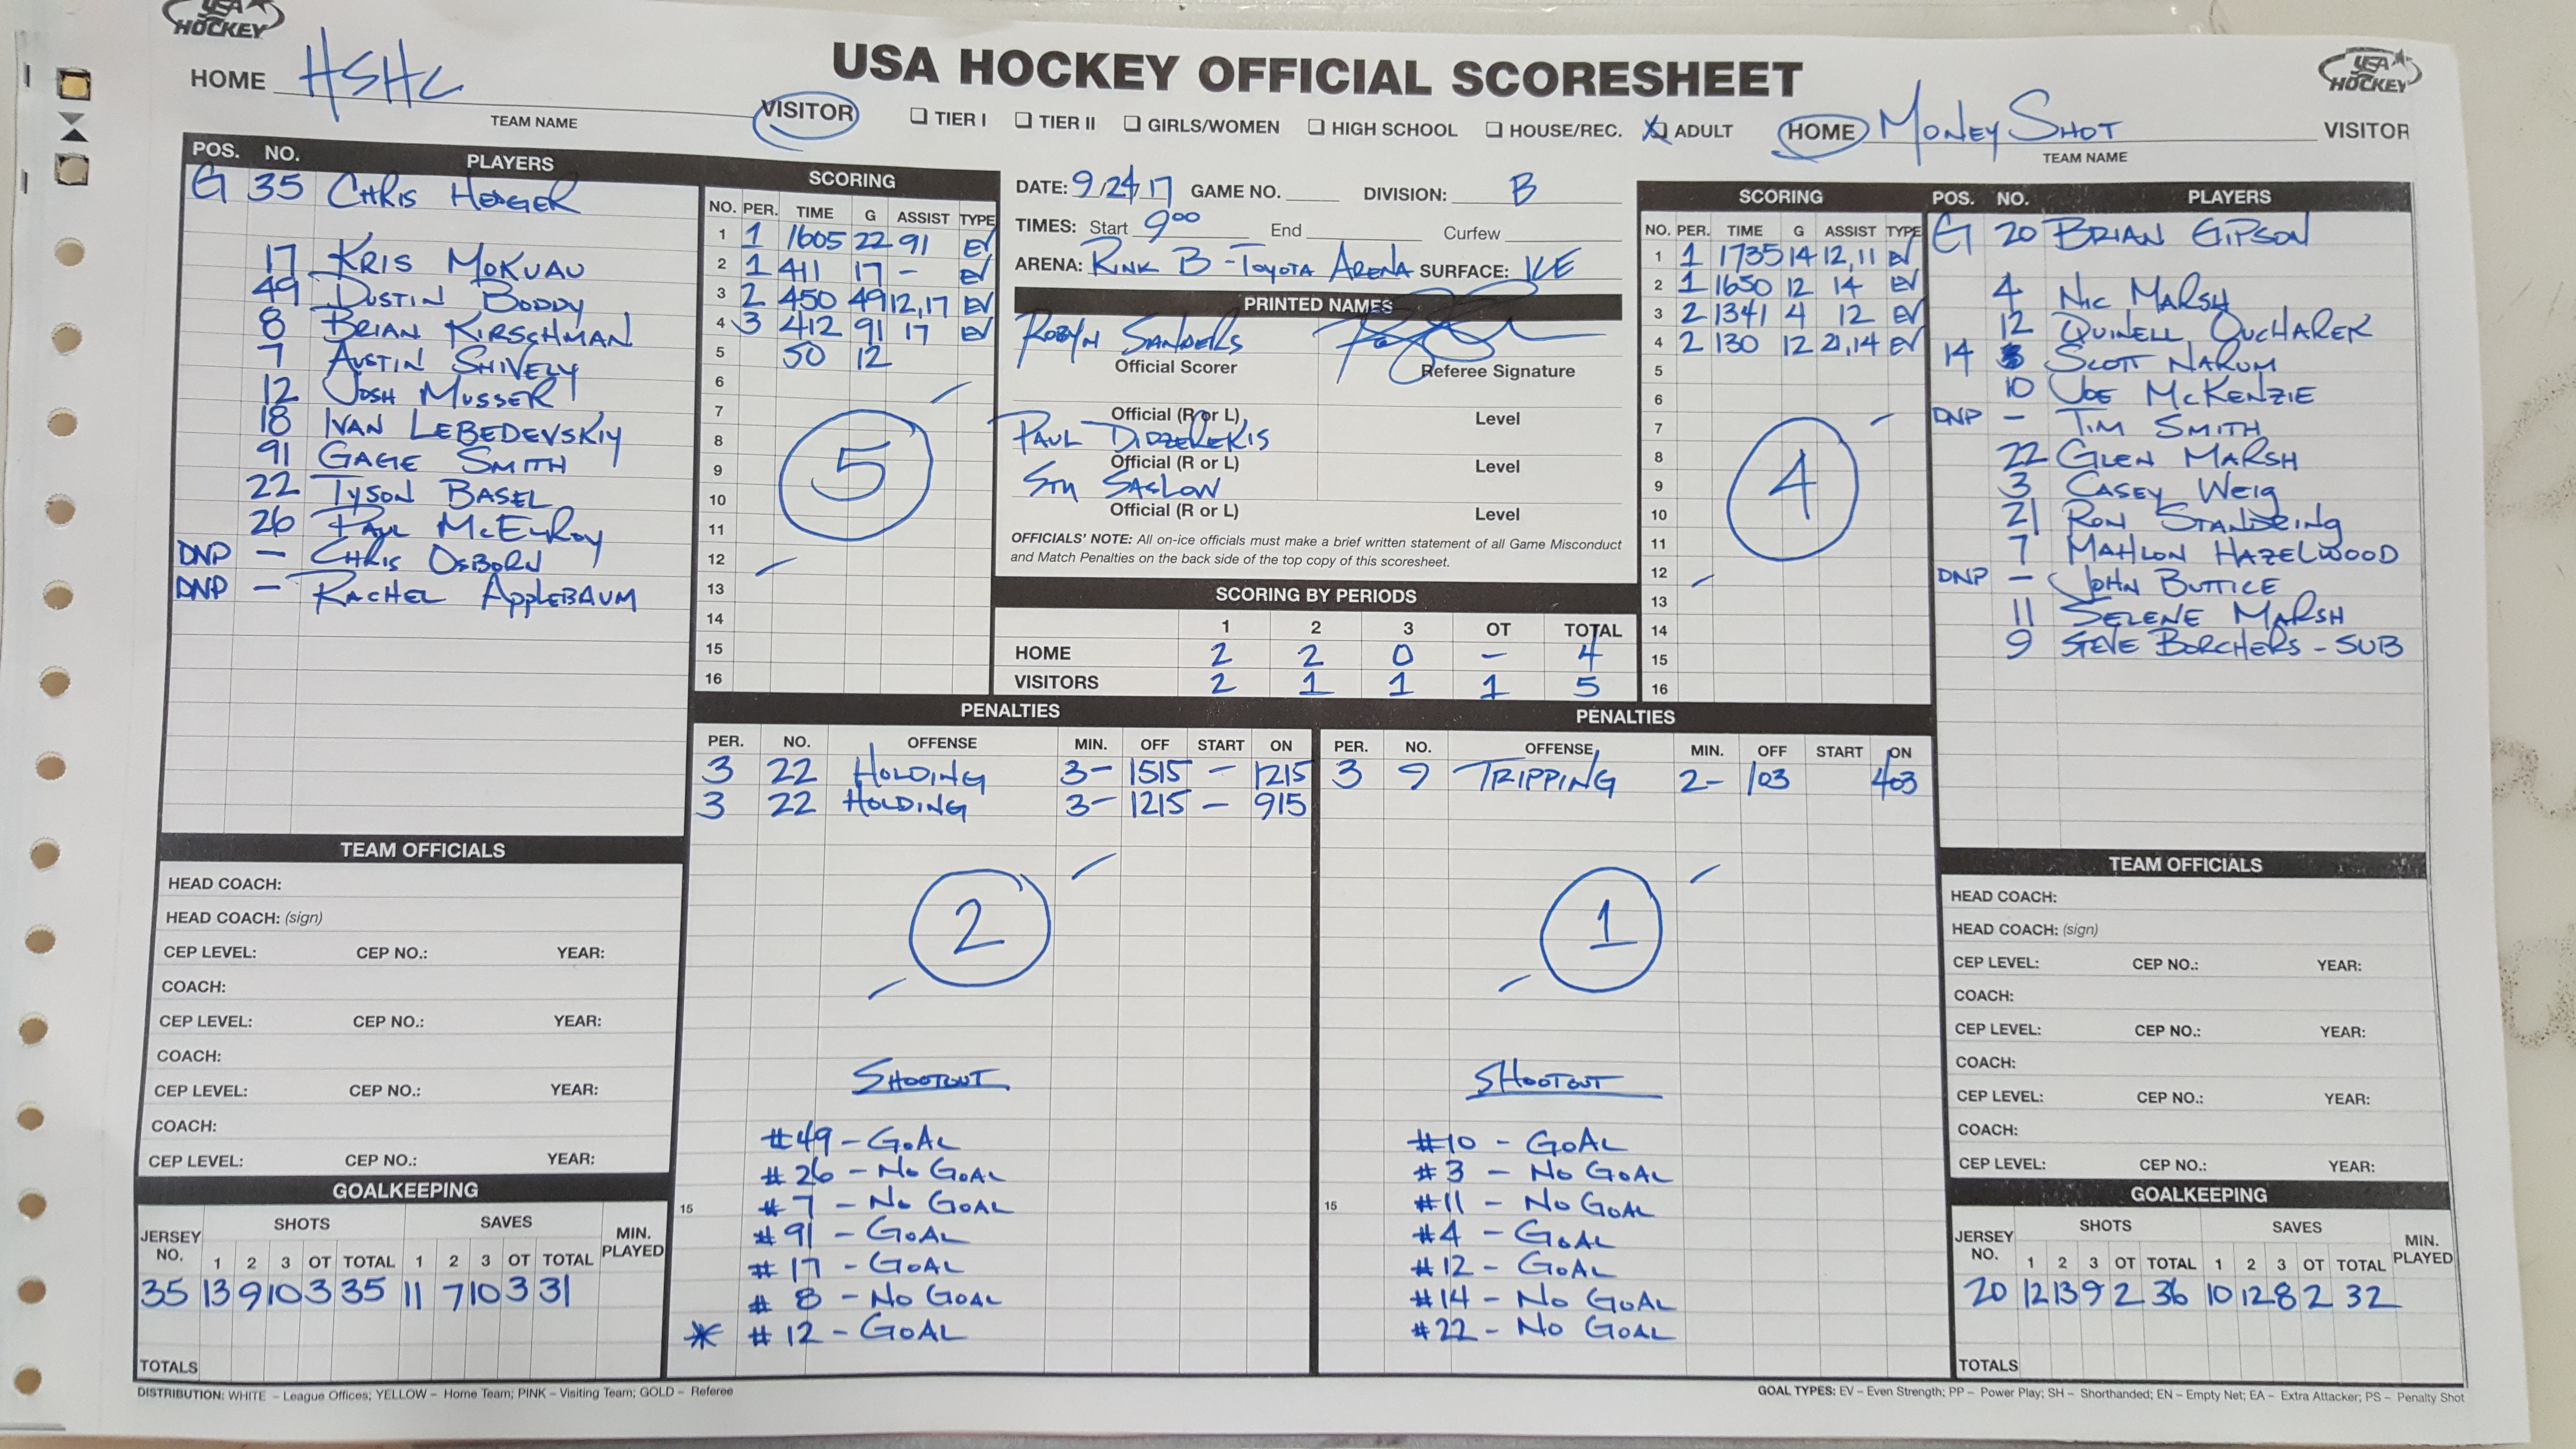 USA HOCKEY
USA HOCKEY OFFICIAL SCORESHEET
USA HOCKEY
HOME HSHC
TEAM NAME
VISITOR
☐ TIER I ☐ TIER II ☐ GIRLS/WOMEN ☐ HIGH SCHOOL ☐ HOUSE/REC. ☒ ADULT
HOME MONEY SHOT VISITOR
TEAM NAME
POS. NO. PLAYERS
G 35 CHRIS HEDGER
17 KRIS MOKUAU
49 DUSTIN BODDY
8 BRIAN KIRSCHMAN
7 AUSTIN SHIVELY
12 JOSH MUSSER
18 IVAN LEBEDEVSKIY
91 GAGE SMITH
22 TYSON BASEL
26 PAUL McELROY
DNP – CHRIS OSBORN
DNP – RACHEL APPLEBAUM
SCORING
NO. PER. TIME G ASSIST TYPE
1 1 1605 22 91 EV
2 1 411 17 - EV
3 2 450 49 12,17 EV
4 3 412 91 17 EV
5 50 12
6
7
8
9
10
11
12
13
14
15
16
5
DATE: 9/24/17 GAME NO. DIVISION: B
TIMES: Start 9 00 End Curfew
ARENA: RINK B - TOYOTA ARENA SURFACE: ICE
PRINTED NAMES
ROBYN SANDERS
Official Scorer Referee Signature
Official (R or L) Level
PAUL DIDZEREKIS
Official (R or L) Level
STU SASLOW
Official (R or L) Level
OFFICIALS' NOTE: All on-ice officials must make a brief written statement of all Game Misconduct
and Match Penalties on the back side of the top copy of this scoresheet.
SCORING BY PERIODS
1 2 3 OT TOTAL
HOME 2 2 0 – 4
VISITORS 2 1 1 1 5
SCORING
NO. PER. TIME G ASSIST TYPE
1 1 1735 14 12,11 EV
2 1 1650 12 14 EV
3 2 1341 4 12 EV
4 2 130 12 21,14 EV
5
6
7
8
9
10
11
12
13
14
15
16
4
POS. NO. PLAYERS
G 20 BRIAN GIPSON
4 NIC MARSH
12 QUINELL OUCHAREK
14 SCOTT NARUM
10 JOE McKENZIE
DNP – TIM SMITH
22 GLEN MARSH
3 CASEY WEIG
21 RON STANDRING
7 MAHLON HAZELWOOD
DNP – JOHN BUTTICE
11 SELENE MARSH
9 STEVE BORCHERS - SUB
PENALTIES
PER. NO. OFFENSE MIN. OFF START ON
3 22 HOLDING 3- 1515 – 1215
3 22 HOLDING 3- 1215 – 915
2
SHOOTOUT
#49 - GOAL
#26 - NO GOAL
15 #7 - NO GOAL
#91 - GOAL
#17 - GOAL
#8 - NO GOAL
* #12 - GOAL
PENALTIES
PER. NO. OFFENSE MIN. OFF START ON
3 9 TRIPPING 2- 103 403
1
SHOOTOUT
#10 - GOAL
#3 - NO GOAL
15 #11 - NO GOAL
#4 - GOAL
#12 - GOAL
#14 - NO GOAL
#22 - NO GOAL
TEAM OFFICIALS
HEAD COACH:
HEAD COACH: (sign)
CEP LEVEL: CEP NO.: YEAR:
COACH:
CEP LEVEL: CEP NO.: YEAR:
COACH:
CEP LEVEL: CEP NO.: YEAR:
COACH:
CEP LEVEL: CEP NO.: YEAR:
GOALKEEPING
JERSEY NO. SHOTS SAVES MIN. PLAYED
1 2 3 OT TOTAL 1 2 3 OT TOTAL
35 13 9 10 3 35 11 7 10 3 31
TOTALS
TEAM OFFICIALS
HEAD COACH:
HEAD COACH: (sign)
CEP LEVEL: CEP NO.: YEAR:
COACH:
CEP LEVEL: CEP NO.: YEAR:
COACH:
CEP LEVEL: CEP NO.: YEAR:
COACH:
CEP LEVEL: CEP NO.: YEAR:
GOALKEEPING
JERSEY NO. SHOTS SAVES MIN. PLAYED
1 2 3 OT TOTAL 1 2 3 OT TOTAL
20 12 13 9 2 36 10 12 8 2 32
TOTALS
DISTRIBUTION: WHITE – League Offices; YELLOW – Home Team; PINK – Visiting Team; GOLD – Referee
GOAL TYPES: EV – Even Strength; PP – Power Play; SH – Shorthanded; EN – Empty Net; EA – Extra Attacker; PS – Penalty Shot